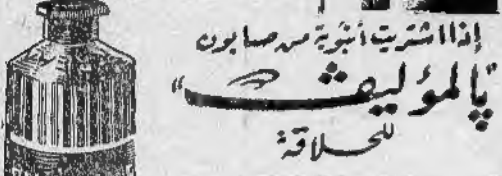 إذا اشتريت أنبوبة من صابون
"پالمؤليڤ"
للحلاقة